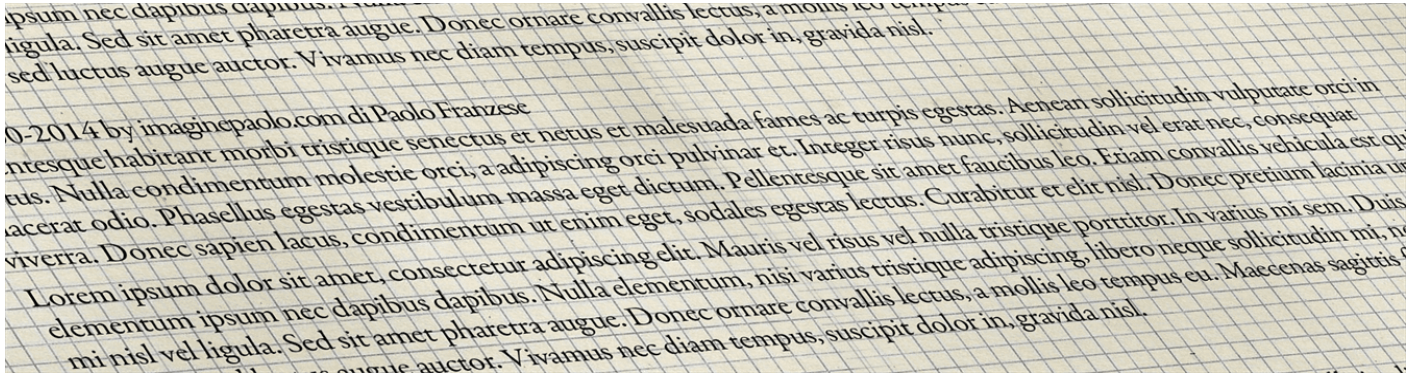 ipsum nec dapibus dapibus.
ligula. Sed sit amet pharetra augue. Donec ornare convallis lectus, a mollis leo tempus
sed luctus augue auctor. Vivamus nec diam tempus, suscipit dolor in, gravida nisl.
0-2014 by imaginepaolo.com di Paolo Franzese
ntesque habitant morbi tristique senectus et netus et malesuada fames ac turpis egestas. Aenean sollicitudin vulputate orci in
tus. Nulla condimentum molestie orci, a adipiscing orci pulvinar et. Integer risus nunc, sollicitudin vel erat nec, consequat
acerat odio. Phasellus egestas vestibulum massa eget dictum. Pellentesque sit amet faucibus leo. Etiam convallis vehicula est qu
viverra. Donec sapien lacus, condimentum ut enim eget, sodales egestas lectus. Curabitur et elit nisl. Donec pretium lacinia ur
Lorem ipsum dolor sit amet, consectetur adipiscing elit. Mauris vel risus vel nulla tristique porttitor. In varius mi sem. Duis
elementum ipsum nec dapibus dapibus. Nulla elementum, nisi varius tristique adipiscing, libero neque sollicitudin mi, ne
mi nisl vel ligula. Sed sit amet pharetra augue. Donec ornare convallis lectus, a mollis leo tempus eu. Maecenas sagittis
augue auctor. Vivamus nec diam tempus, suscipit dolor in, gravida nisl.